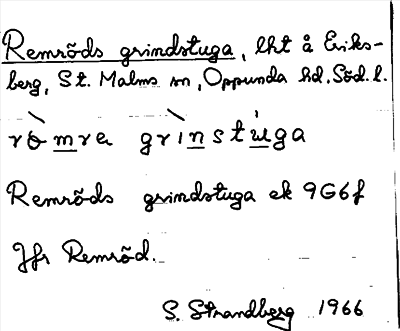 Remröds grindstuga, lht å Eriks-
berg, St. Malms sn, Oppunda hd, Söd. l.
Remröds grindstuga ek 9G6f
Jfr Remröd.
S. Strandberg 1966